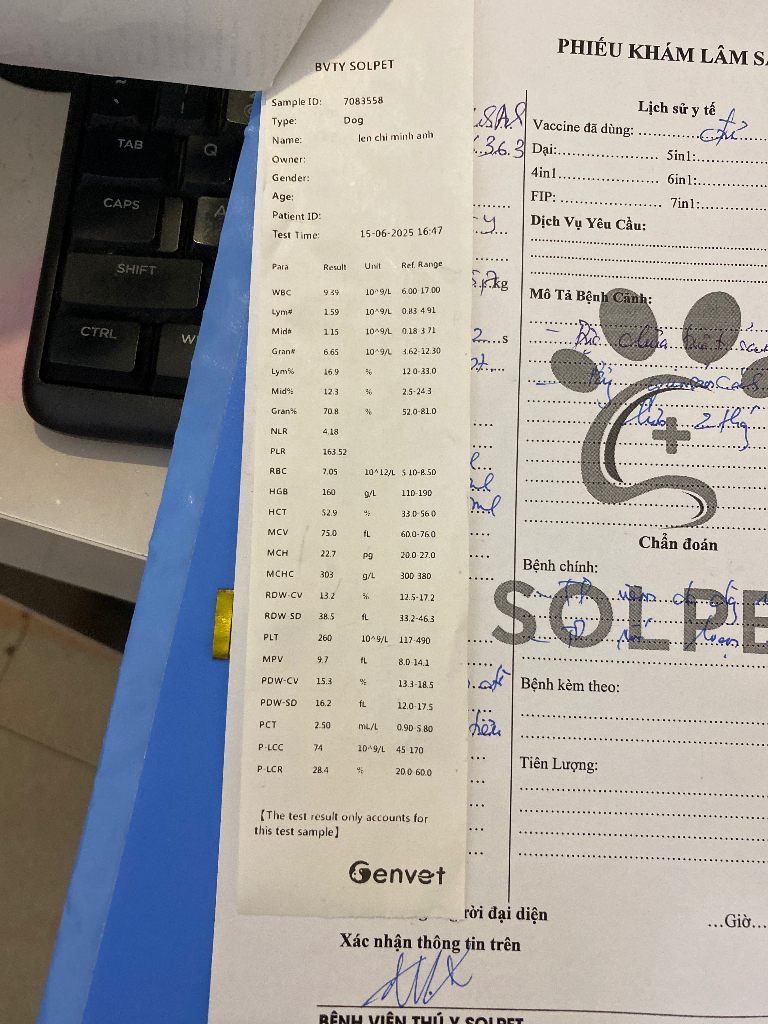 BVTY SOLPET
Sample ID: 7083558
Type: Dog
Name: len chi minh anh
Owner:
Gender:
Age:
Patient ID:
Test Time: 15-06-2025 16:47
Para Result Unit Ref. Range
WBC 9.39 10^9/L 6.00-17.00
Lym# 1.59 10^9/L 0.83-4.91
Mid# 1.15 10^9/L 0.18-3.71
Gran# 6.65 10^9/L 3.62-12.30
Lym% 16.9 % 12.0-33.0
Mid% 12.3 % 2.5-24.3
Gran% 70.8 % 52.0-81.0
NLR 4.18
PLR 163.52
RBC 7.05 10^12/L 5.10-8.50
HGB 160 g/L 110-190
HCT 52.9 % 33.0-56.0
MCV 75.0 fL 60.0-76.0
MCH 22.7 pg 20.0-27.0
MCHC 303 g/L 300-380
RDW-CV 13.2 % 12.5-17.2
RDW-SD 38.5 fL 33.2-46.3
PLT 260 10^9/L 117-490
MPV 9.7 fL 8.0-14.1
PDW-CV 15.3 % 13.3-18.5
PDW-SD 16.2 fL 12.0-17.5
PCT 2.50 mL/L 0.90-5.80
P-LCC 74 10^9/L 45-170
P-LCR 28.4 % 20.0-60.0
【The test result only accounts for
this test sample】
Genvet
PHIẾU KHÁM LÂM SÀ
Lịch sử y tế
Vaccine đã dùng:
Dại: 5in1:
4in1 6in1:
FIP: 7in1:
Dịch Vụ Yêu Cầu:
Mô Tả Bệnh Cảnh:
Chẩn đoán
Bệnh chính:
SOLPE
Bệnh kèm theo:
Tiên Lượng:
kg
s
ml
ml
3.6.3
rời đại diện
...Giờ...
Xác nhận thông tin trên
BỆNH VIỆN THÚ Y SOLPET
TAB
Q
CAPS
A
SHIFT
CTRL
W